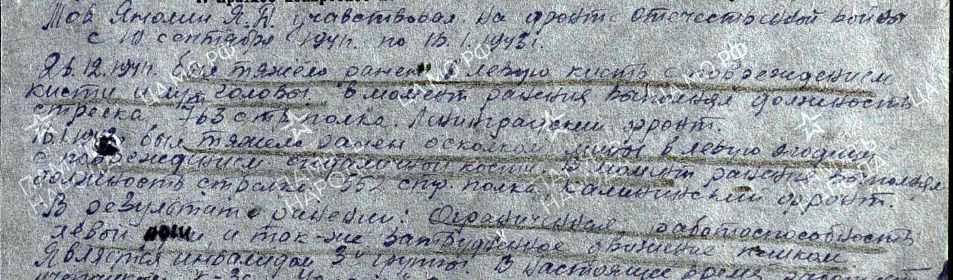 Тов Яномин Я.П. учавствовал на фронте отечественной войны
с 10 сентября 1941г. по 15.1.1943г.
23.12.1941г. был тяжело ранен в левую кисть с повреждением
кисти и головы в момент ранения выполнял должность
стрелка 763 стр. полка. Лининграйский фронт.
был тяжело ранен осколком мины в левую ягодицу
с повреждением седалищной кости. В момент ранения выполнял
должность стрелка 55 стр. полка. Калининский фронт.
В результате ранении: Ограниченная работоспособность
левой и так-же затрудненное движение
Является инвалидом 3й группы. В настоящее время